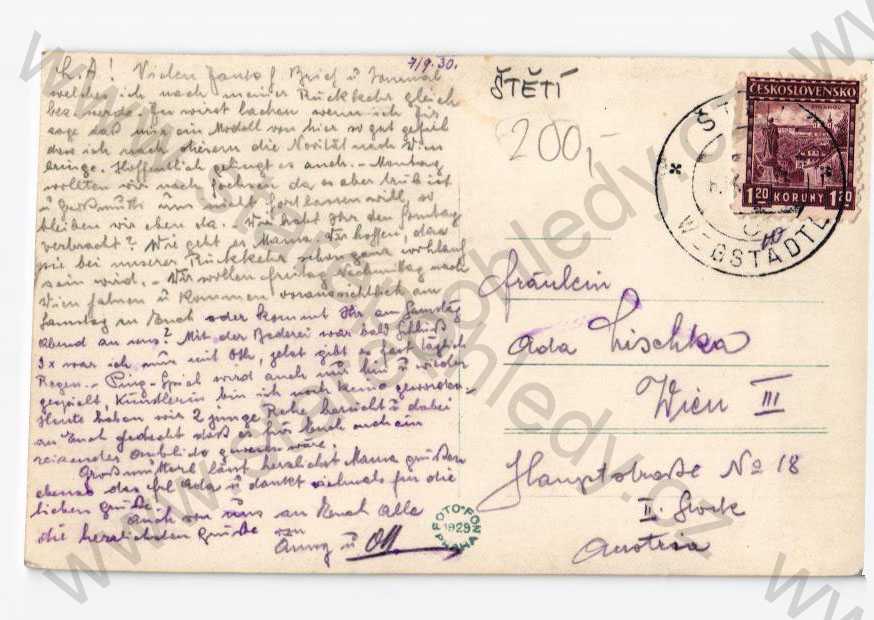 7/9. 30.
L. A! Vielen Dank f. Brief u Journal
welches ich nach meiner Rückkehr gleich
Du wirst lachen wenn ich Dir
sage daß mir ein Modell von hier so gut gefiel
das ich nach die Novität nach Wien
bringe. Hoffentlich gelingt es auch. – Montag
wollten wir nach da es aber trüb ist
u Großmutti uns nicht fortlassen will, so
bleiben wir eben da. – Wie habt Ihr den Sonntag
verbracht? Wie geht es Mama, wir hoffen, das
sie bei unserer Rückkehr schon ganz wohlauf
sein wird. – Wir wollen Freitag Nachmittag nach
Wien fahren u kommen voraussichtlich am
Samstag zu Euch oder kommt Ihr am Samstag
Abend zu uns? Mit der Baderei war bald Schluß
3x war ich nur mit Otto, jetzt gibt es fast täglich
Regen. – Ping-Spiel wird auch nur hin u wieder
gespielt, Künstlerin bin ich noch keine geworden.
Heute haben wir 2 junge Rehe u dabei
an Euch gedacht daß es für Euch auch ein
reizender Anblick gewesen wäre.
Großmutterl lässt herzlichst Mama grüßen
ebenso das Frl Ada u dankt vielmals für die
lieben Grüße.
Auch von uns an Euch Alle
die herzlichsten Grüße von
u Ott
ŠTĚTÍ
200,-
ČESKOSLOVENSKO
1.20 KORUNY 1.20
WEGSTÄDTL
Fräulein
Ada Lischka
Wien III
Hauptstraße No 18
II. Stock
Austria
FOTO-FON
1929
PRAHA
www.starepohledy.cz